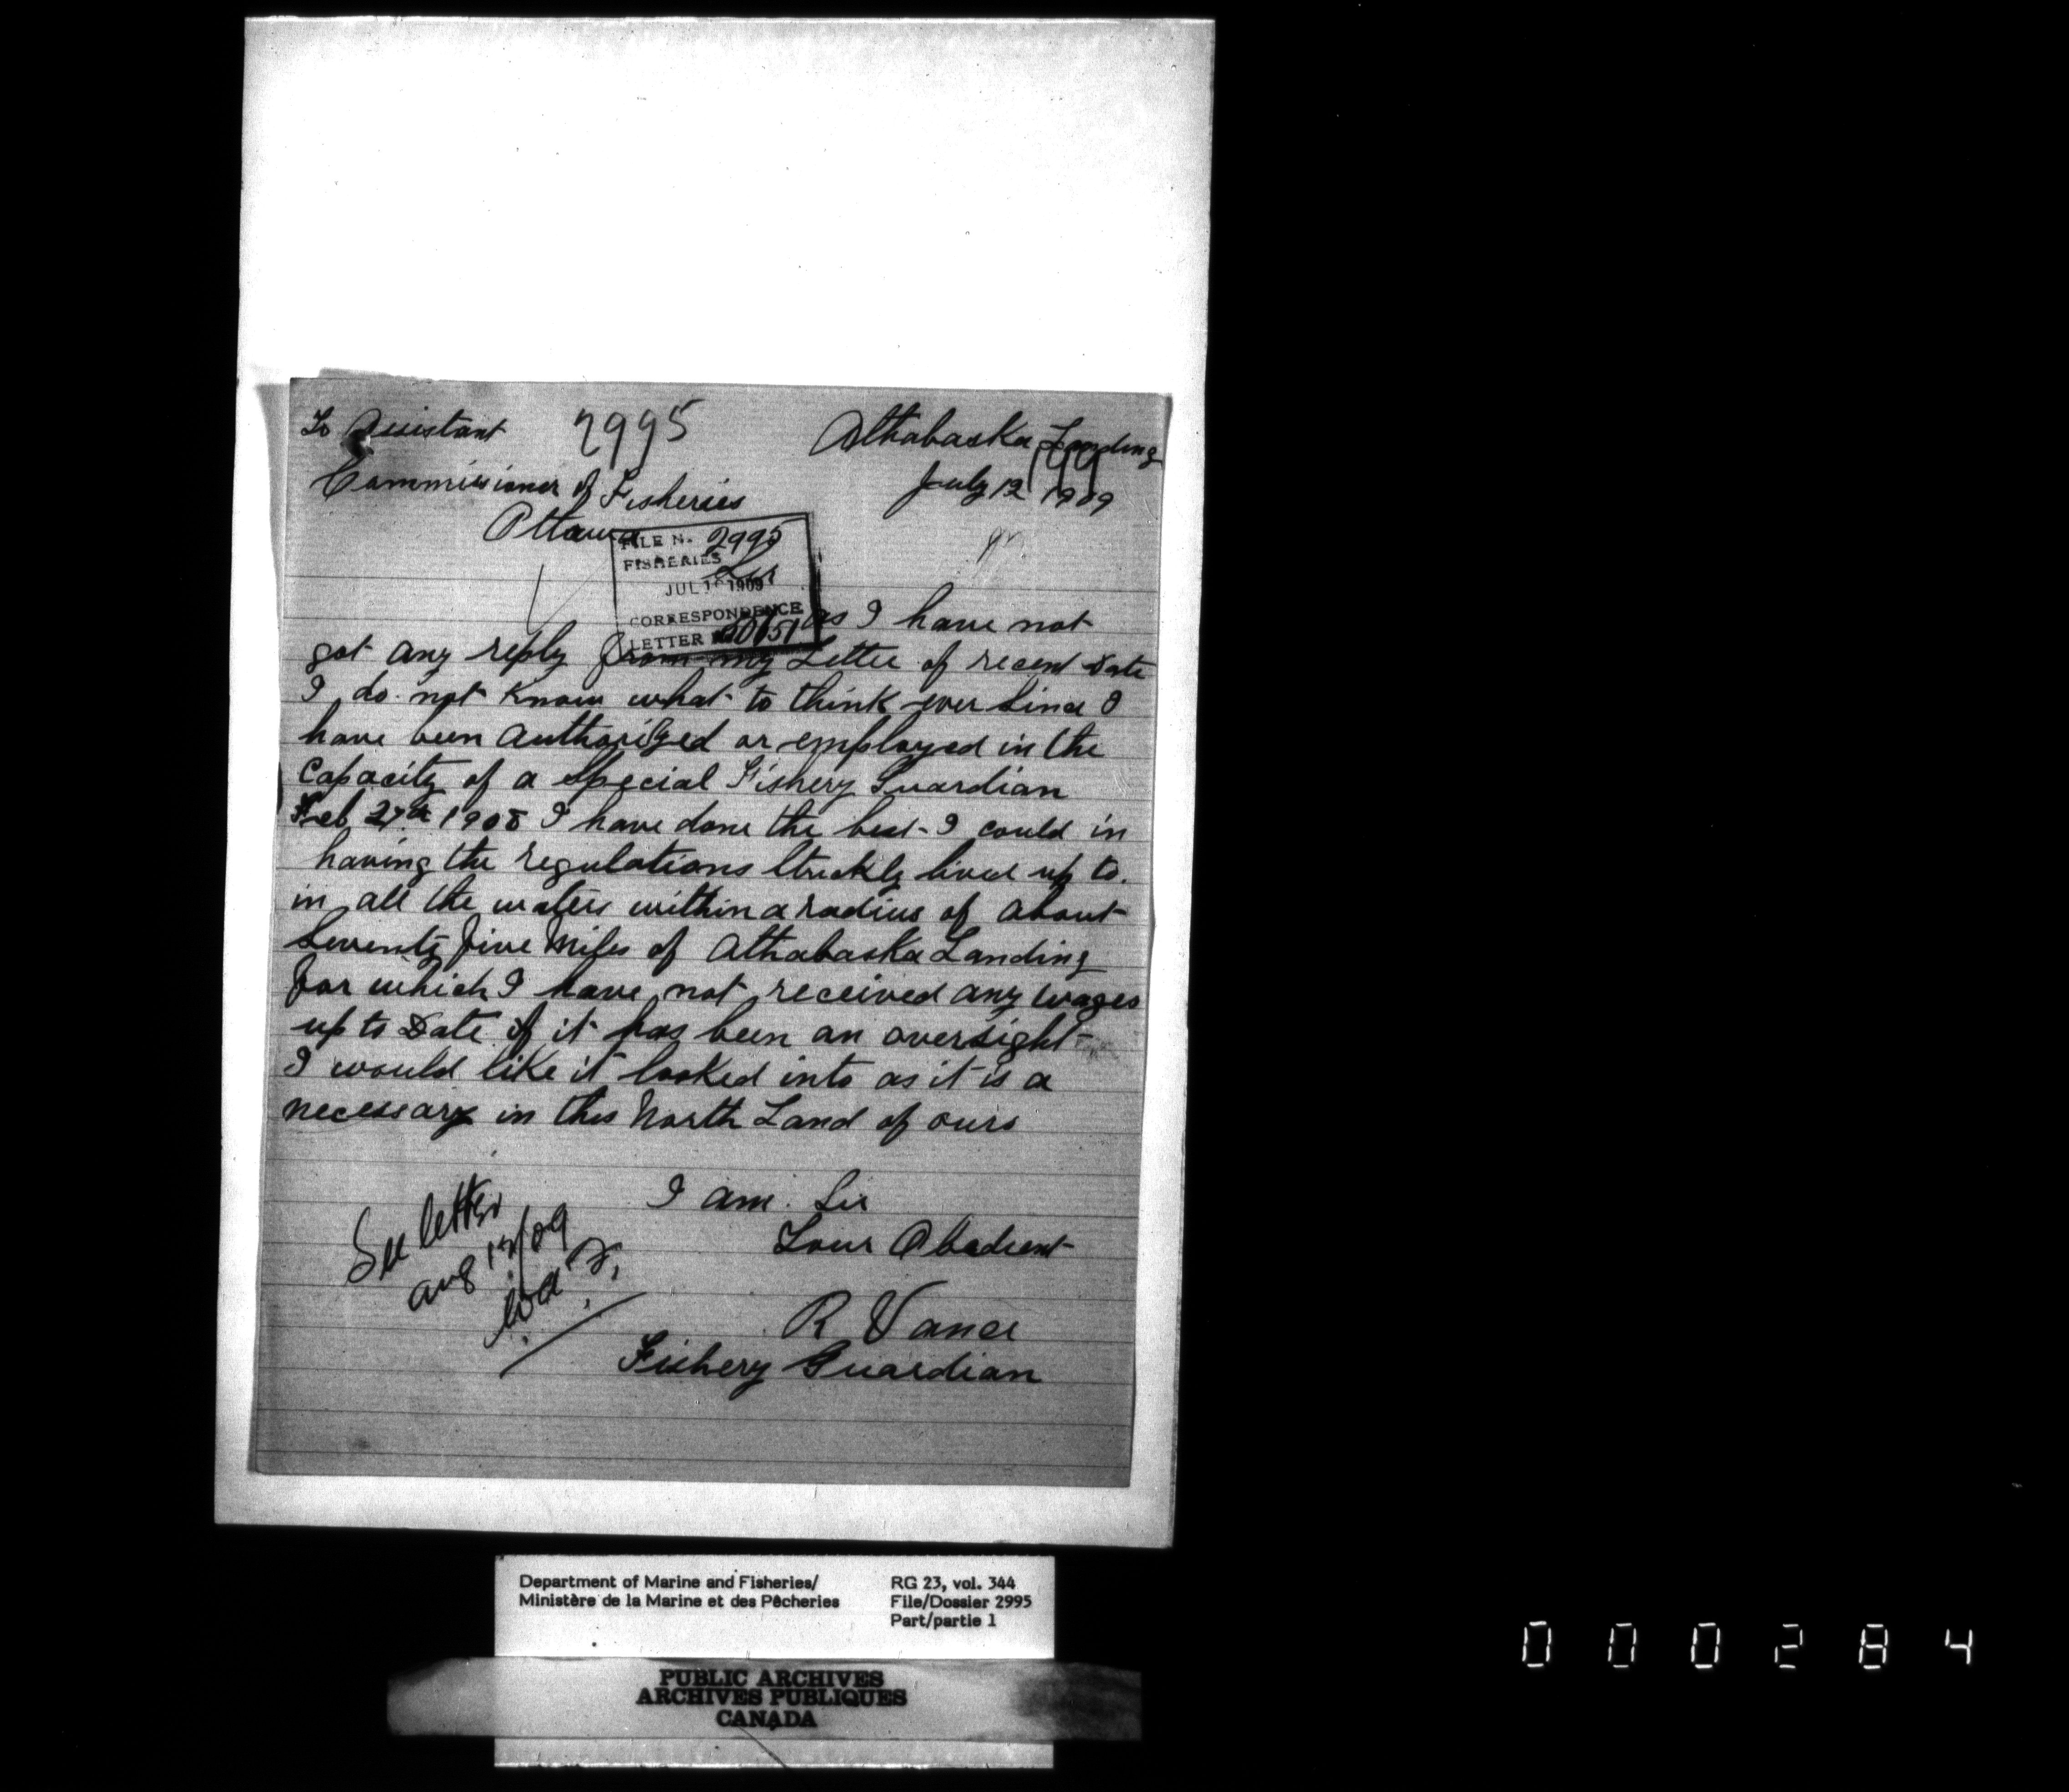 To Assistant
2995
Athabaska Landing
Commissioner of Fisheries
199
July 12 1909
Ottawa
FILE N. 2995
FISHERIES
Sir
JUL 1909
CORRESPONDENCE
LETTER
as I have not
got any reply from my Letter of recent Date
I do not Know what to think ever Since I
have been Authorized or employed in the
Capacity of a Special Fishery Guardian
Feb 27th 1908 I have done the best I could in
having the regulations Strickly lived up to.
in all the waters within a radius of about
Seventy five Miles of Athabaska Landing
for which I have not received any wages
up to Date if it has been an oversight
I would like it looked into as it is a
necessary in this North Land of ours
I am. Sir
Your Obedient
R Vance
Fishery Guardian
See letter
Aug 12/09
Department of Marine and Fisheries/
Ministère de la Marine et des Pêcheries
RG 23, vol. 344
File/Dossier 2995
Part/partie 1
PUBLIC ARCHIVES
ARCHIVES PUBLIQUES
CANADA
000284